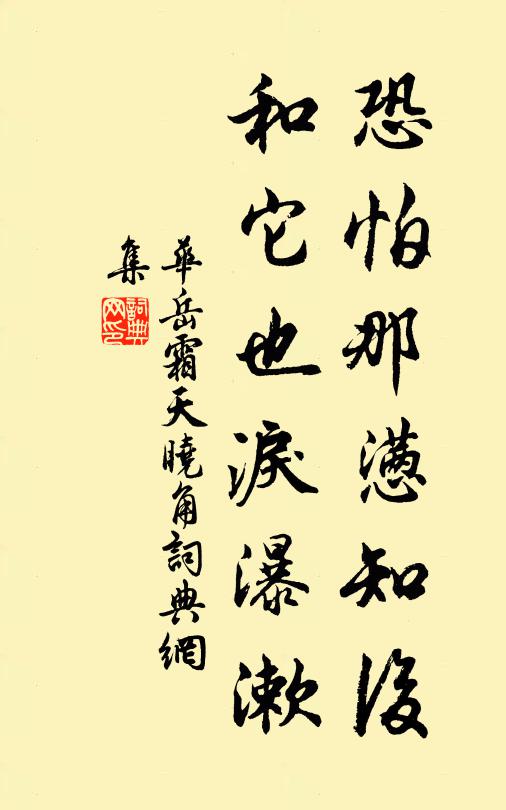 恐怕那懣知後
和它也淚瀑漱
華岳霜天曉角詞典網
集
詞典
网印